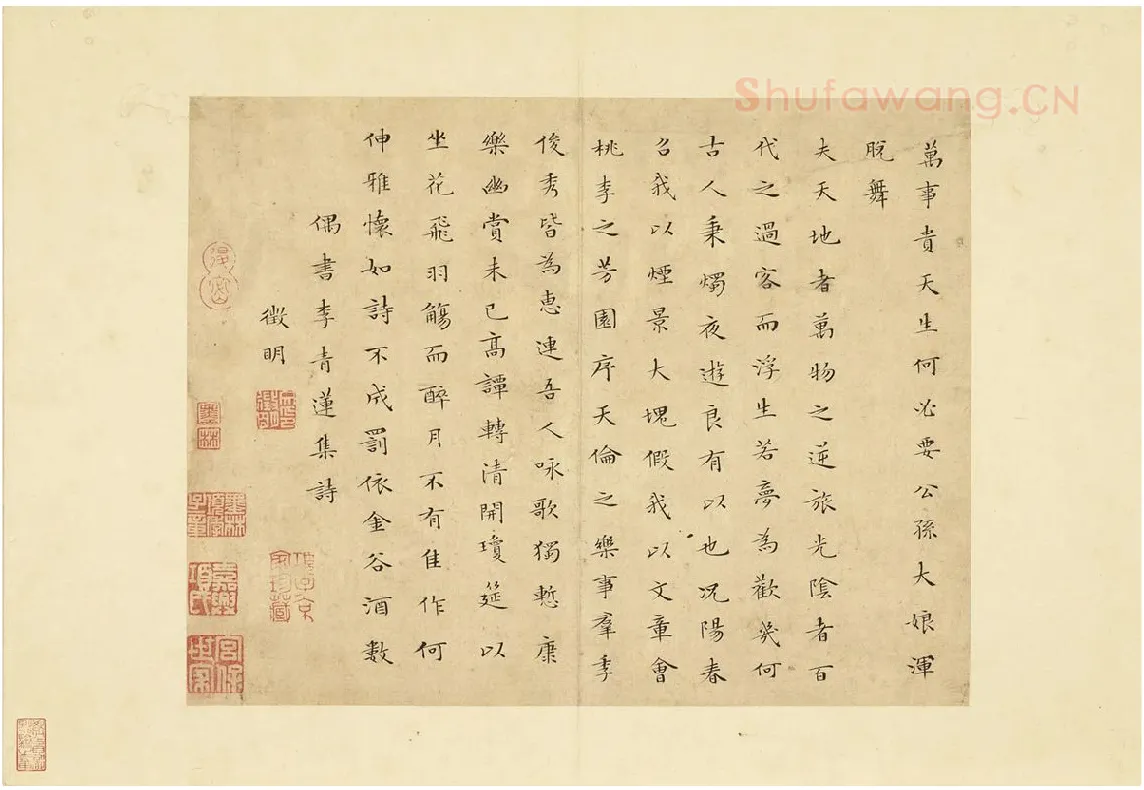 Shufawang.CN
萬事貴天生何必要公孫大娘渾
脫舞
夫天地者萬物之逆旅光陰者百
代之過客而浮生若夢為歡幾何
古人秉燭夜遊良有以也況陽春
召我以煙景大塊假我以文章會
桃李之芳園序天倫之樂事羣季
俊秀皆為惠連吾人咏歌獨慙康
樂幽賞未已高譚轉清開瓊筵以
坐花飛羽觴而醉月不有佳作何
伸雅懷如詩不成罰依金谷酒數
偶書李青蓮集詩
徵明
項子京家珍藏
墨林
宮保世家